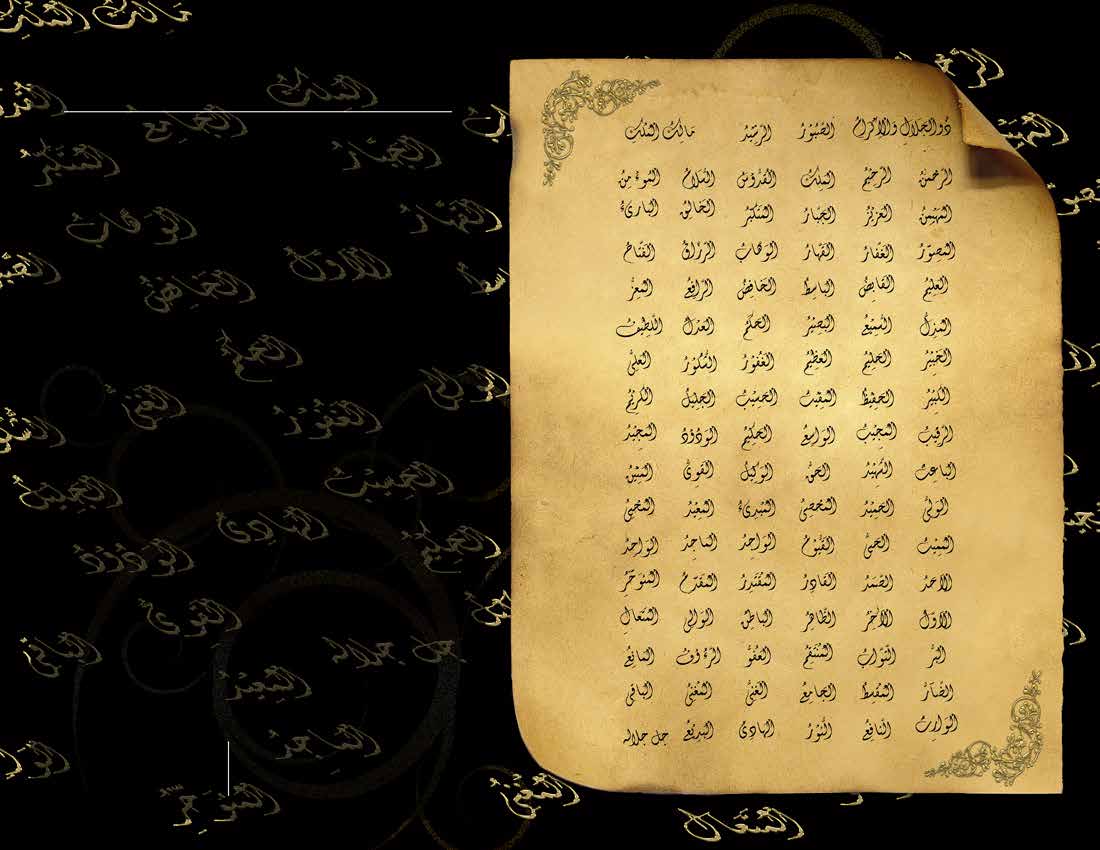 ذوالجلال والاكرام الصبور الرشيد مالك الملك
الرحمن الرحيم الملك القدوس السلام المؤمن
المهيمن العزيز الجبار المتكبر الخالق البارئ
المصور الغفار القهار الوهاب الرزاق الفتاح
العليم القابض الباسط الخافض الرافع المعز
المذل السميع البصير الحكم العدل اللطيف
الخبير الحليم العظيم الغفور الشكور العلي
الكبير الحفيظ المقيت الحسيب الجليل الكريم
الرقيب المجيب الواسع الحكيم الودود المجيد
الباعث الشهيد الحق الوكيل القوى المتين
الولى الحميد المحصى المبدئ المعيد المحيى
المميت الحى القيوم الواجد الماجد الواحد
الاحد الصمد القادر المقتدر المقدم المؤخر
الاول الآخر الظاهر الباطن الوالى المتعال
البر التواب المنتقم العفو الرءوف المانع
الضار المقسط الجامع الغنى المغنى الباقى
الوارث النافع النور الهادى البديع جل جلاله
مالك الملك
الملك
الجامع
الجبار
المتكبر
الوهاب
القهار
الاول
الخافض
الحكم
الغنى
الغفور
الحسيب
الجليل
الهادى
الودود
الحكيم
القوى
الباقى
جل جلاله
المعيد
الماجد
المؤخر
المغنى
المتعال